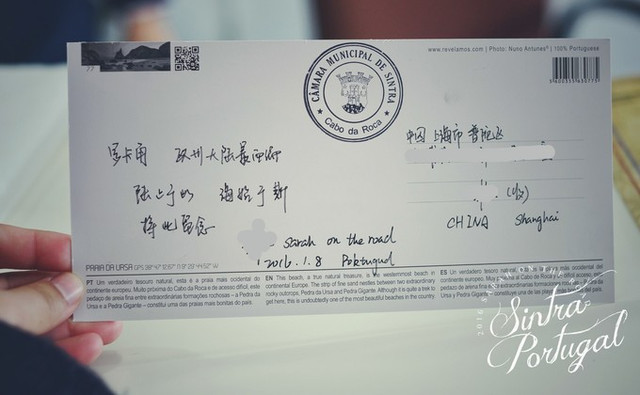 www.revelamos.com | Photo: Nuno Antunes® | 100% Portuguese
CÂMARA MUNICIPAL DE SINTRA
Cabo da Roca
罗卡角 欧洲大陆最西端
陆止于此 海始于斯
特此留念
Sarah on the road
2016.1.8 Portugal
中国 上海市 普陀区
(收)
CHINA Shanghai
PRAIA DA URSA GPS
PT Um verdadeiro tesouro natural, esta é a praia mais ocidental do
continente europeu. Muito próxima do Cabo da Roca e de acesso difícil, este
pedaço de areia fina entre extraordinárias formações rochosas – a Pedra da
Ursa e a Pedra Gigante – constitui uma das praias mais bonitas do país.
EN This beach, a true natural treasure, is the westernmost beach in
continental Europe. The strip of fine sand nestles between two extraordinary
rocky outcrops, Pedra da Ursa and Pedra Gigante. Although it is quite a trek to
get here, this is undoubtedly one of the most beautiful beaches in the country.
ES Un verdadero tesoro natural, más occidental del
continente europeo. Muy próxima del Cabo da Roca y de difícil acceso, este
pedazo de arena fina entre extraordinarias
Ursa y a Pedra Gigante – constituye una
Sintra
Portugal